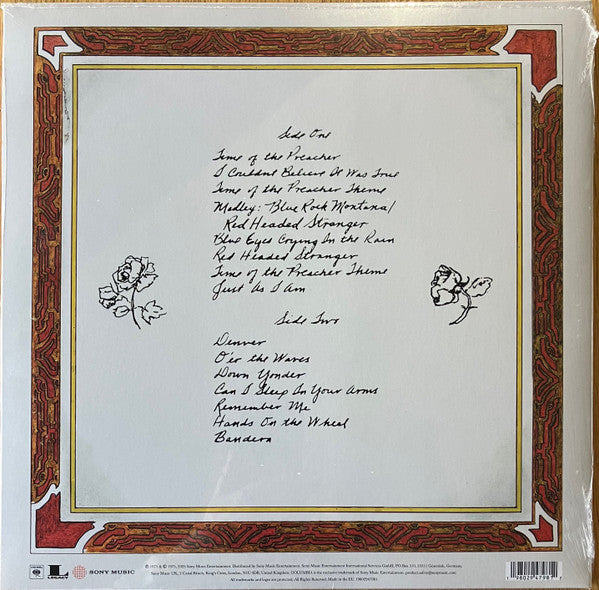 Side One
Time of the Preacher
I Couldn't Believe It Was True
Time of the Preacher Theme
Medley: Blue Rock Montana/
Red Headed Stranger
Blue Eyes Crying In the Rain
Red Headed Stranger
Time of the Preacher Theme
Just As I Am
Side Two
Denver
O'er the Waves
Down Yonder
Can I Sleep In Your Arms
Remember Me
Hands On the Wheel
Bandera
L
LEGACY
SONY MUSIC